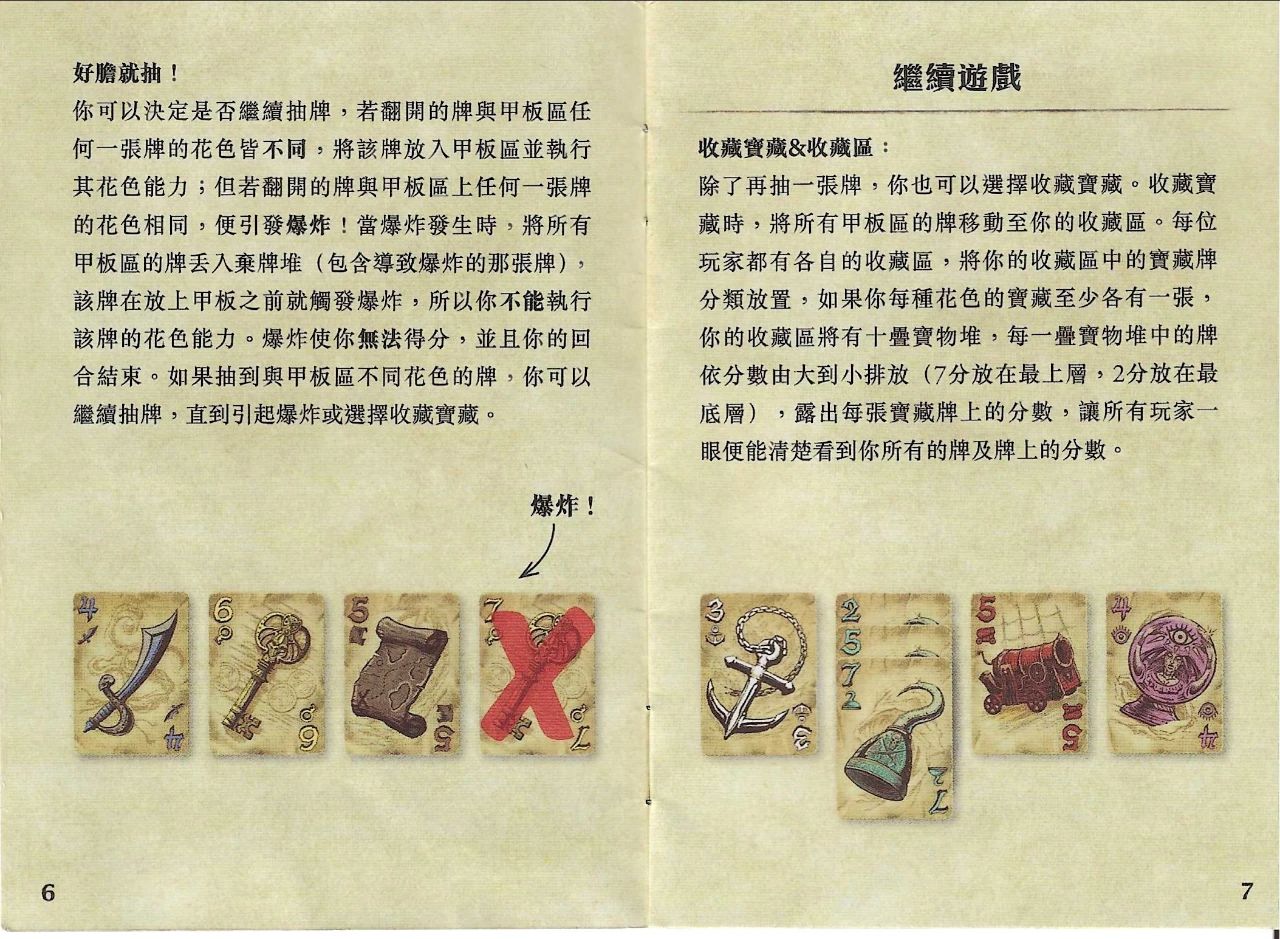 好膽就抽！
你可以決定是否繼續抽牌，若翻開的牌與甲板區任
何一張牌的花色皆不同，將該牌放入甲板區並執行
其花色能力；但若翻開的牌與甲板區上任何一張牌
的花色相同，便引發爆炸！當爆炸發生時，將所有
甲板區的牌丟入棄牌堆（包含導致爆炸的那張牌），
該牌在放上甲板之前就觸發爆炸，所以你不能執行
該牌的花色能力。爆炸使你無法得分，並且你的回
合結束。如果抽到與甲板區不同花色的牌，你可以
繼續抽牌，直到引起爆炸或選擇收藏寶藏。
爆炸！
4
4
6
6
5
5
7
7
6
繼續遊戲
收藏寶藏&收藏區：
除了再抽一張牌，你也可以選擇收藏寶藏。收藏寶
藏時，將所有甲板區的牌移動至你的收藏區。每位
玩家都有各自的收藏區，將你的收藏區中的寶藏牌
分類放置，如果你每種花色的寶藏至少各有一張，
你的收藏區將有十疊寶物堆，每一疊寶物堆中的牌
依分數由大到小排放（7分放在最上層，2分放在最
底層），露出每張寶藏牌上的分數，讓所有玩家一
眼便能清楚看到你所有的牌及牌上的分數。
3
3
2
5
7
7
5
5
4
4
7